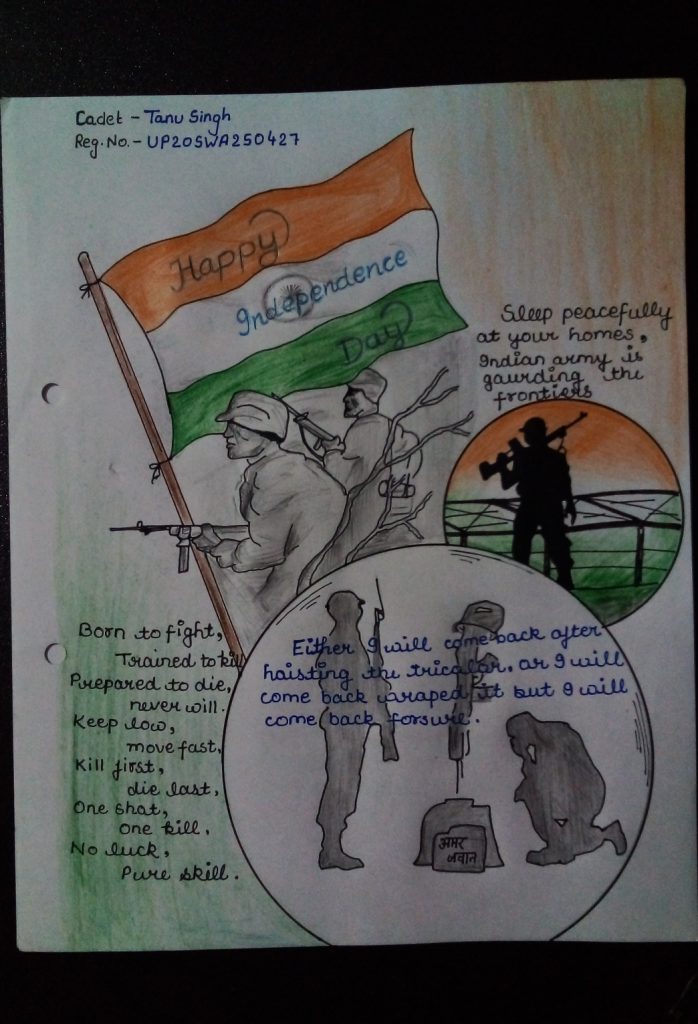 Cadet - Tanu Singh
Reg. No. - UP20SWA250427
Happy
Independence
Day
Sleep peacefully
at your homes,
Indian army is
gaurding the
frontiers
Born to fight,
Trained to kill
Prepared to die,
never will.
Keep low,
move fast,
Kill first,
die last,
One shot,
One kill.
No luck,
Pure skill.
Either I will come back after
haisting the tricolor, or I will
come back wraped it but I will
come back forsure.
अमर
जवान